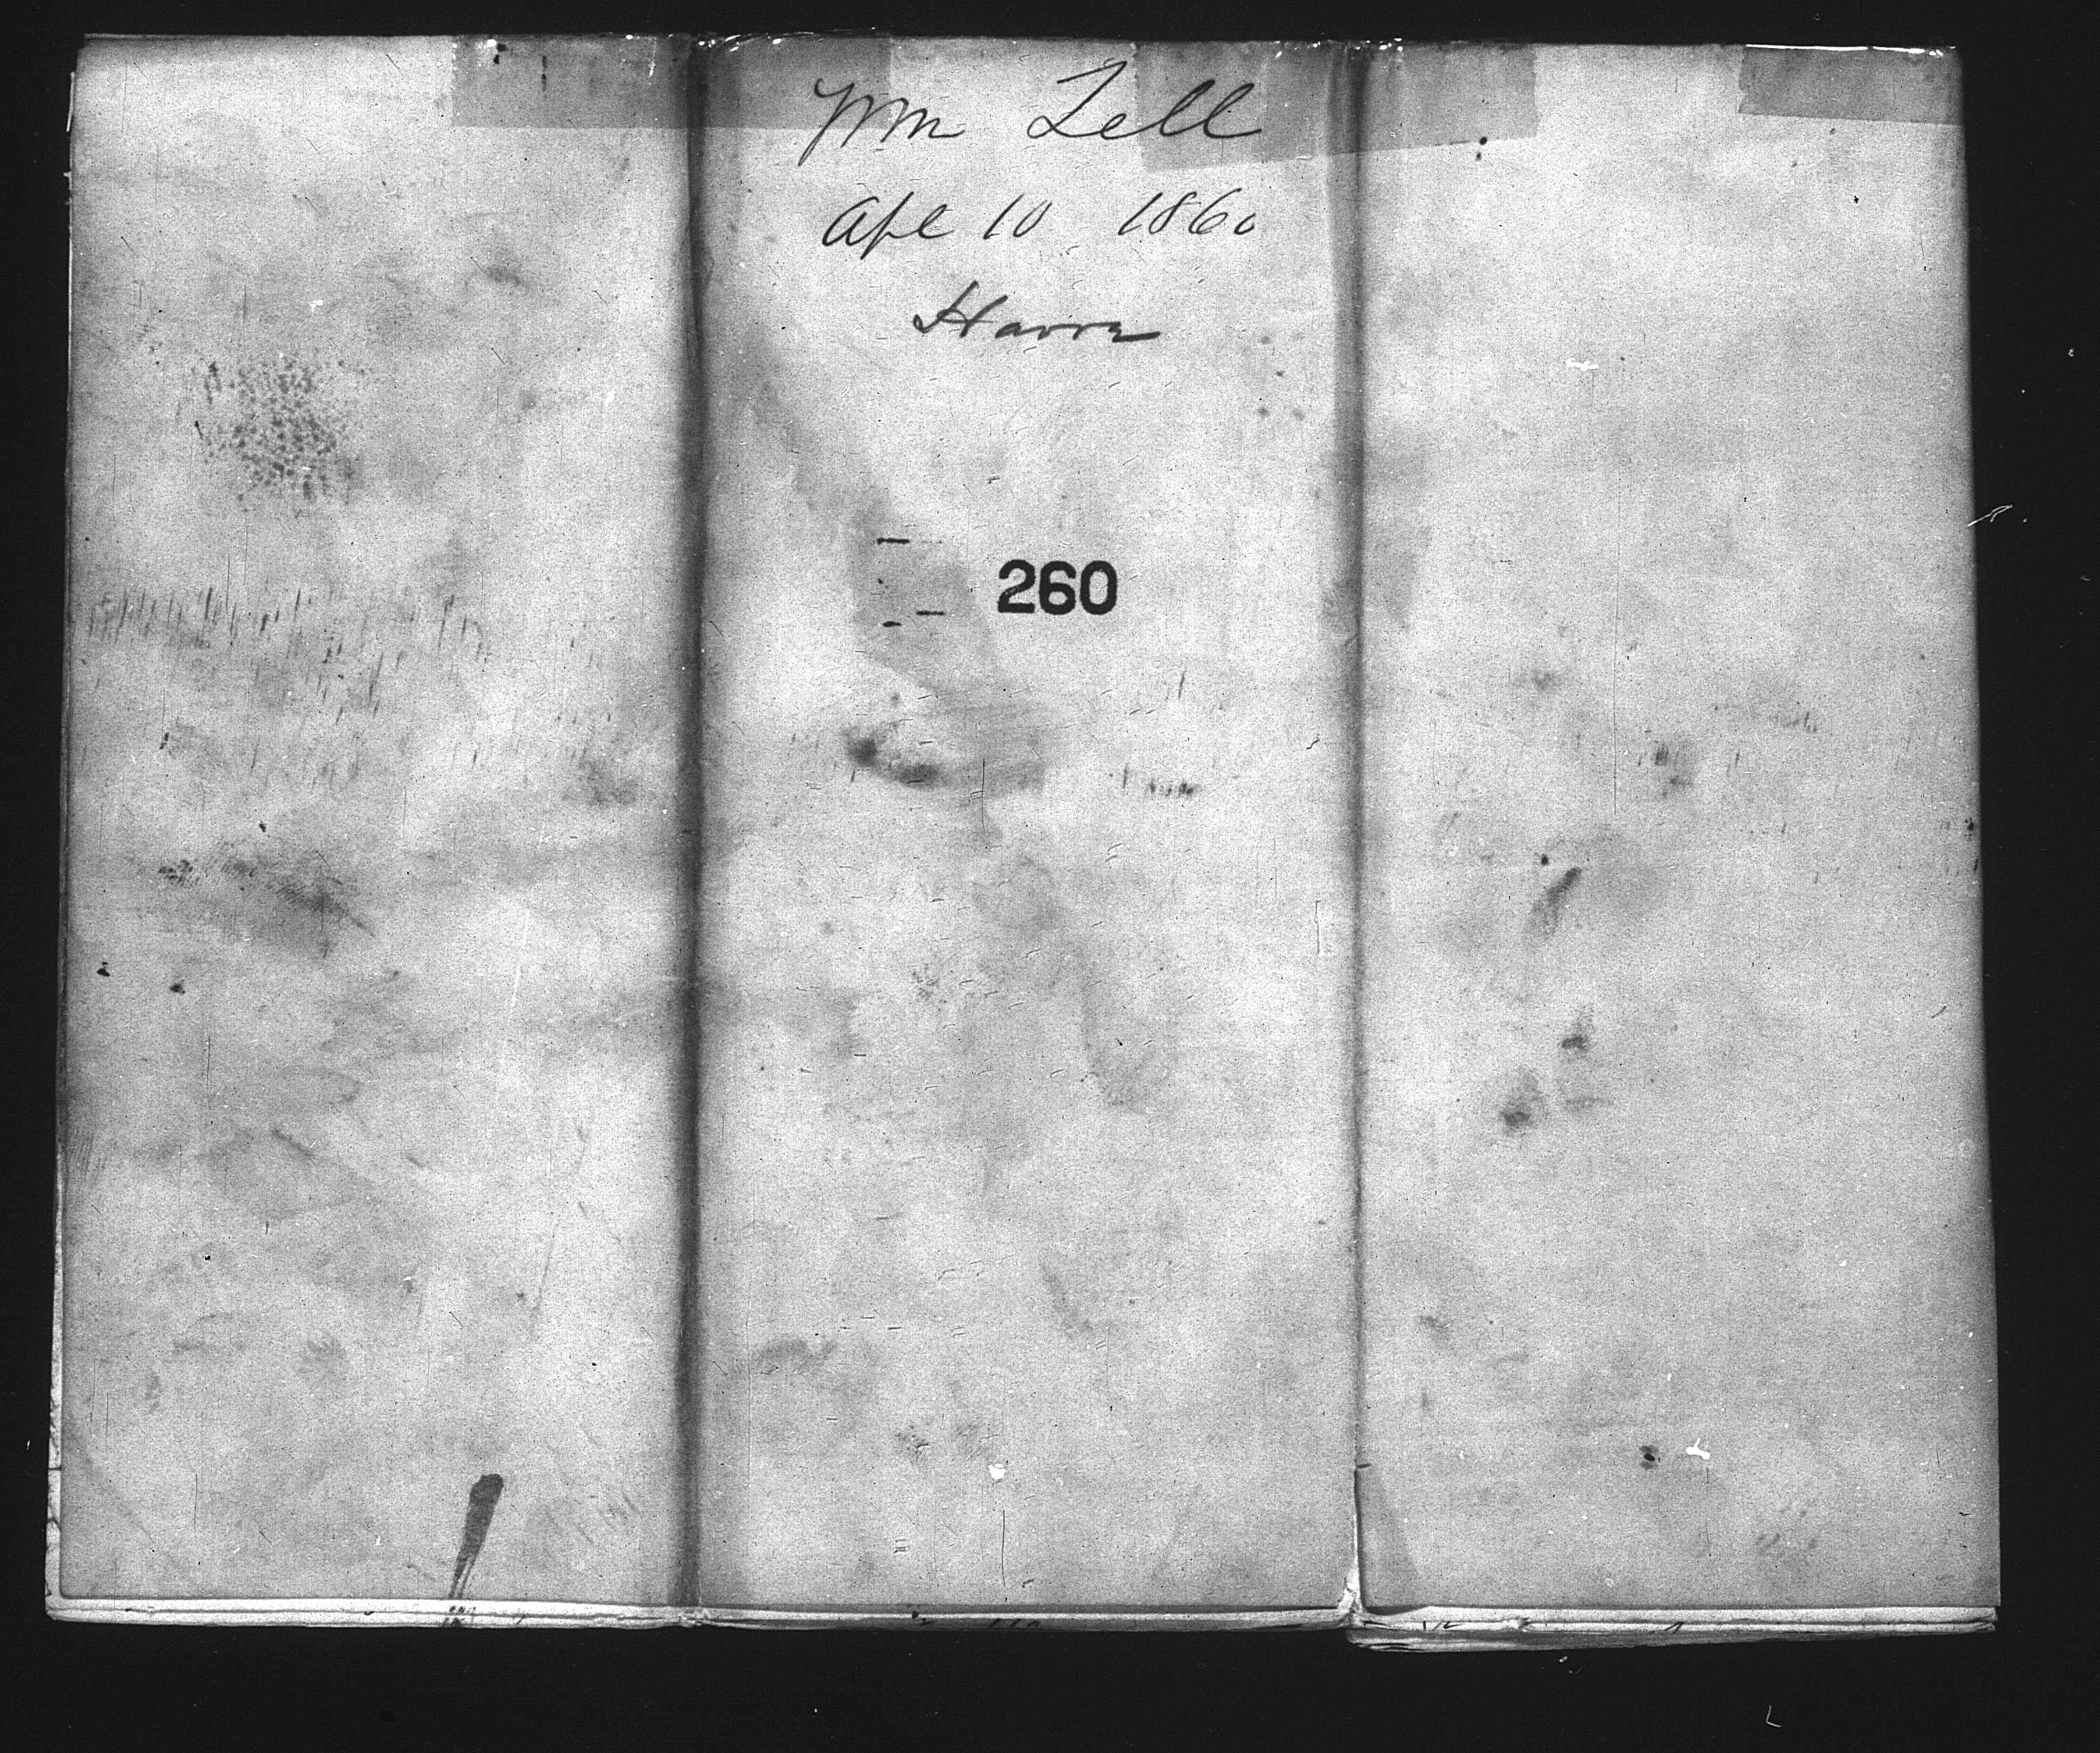 Wm Tell
Apl 10 1860
Havre
260